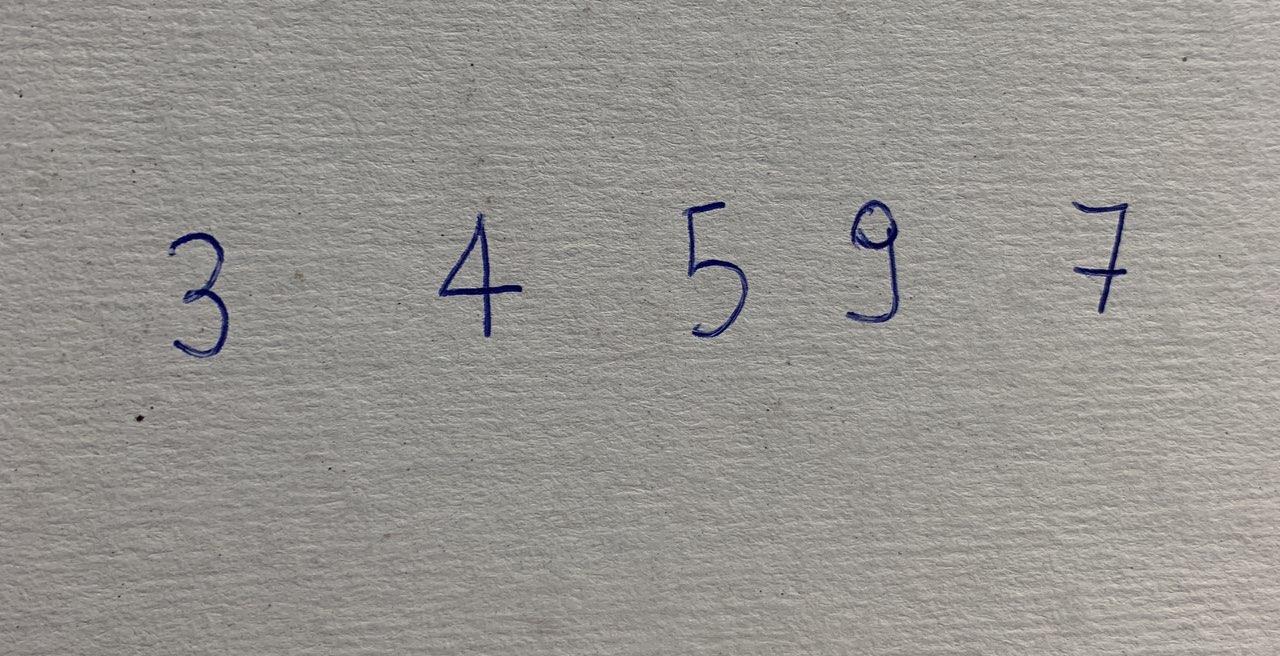 3 4 5 9 7